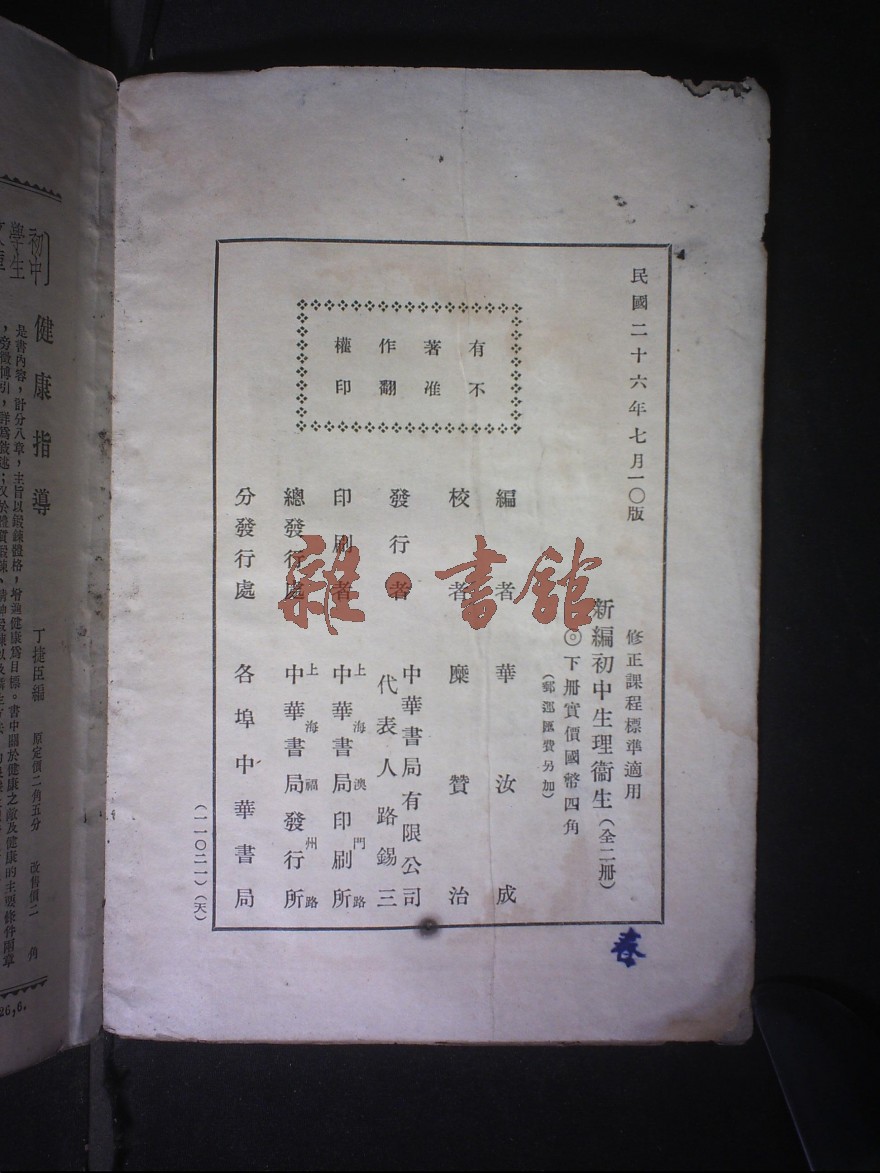 民國二十六年七月一〇版
修正課程標準適用
新編初中生理衞生(全二冊)
◎下册實價國幣四角
(郵運匯費另加)
有著作權
不准翻印
編者 華汝成
校者 糜贊治
發行者 中華書局有限公司
代表人路錫三
印刷者 上海澳門路
中華書局印刷所
總發行處 上海福州路
中華書局發行所
分發行處 各埠中華書局
(一一〇二一)(天)
雜·書館
春
初中
學生
健康指導
丁捷臣編 原定價二角五分 改售價二角
是書內容,計分八章,主旨以鍛鍊體格,增進健康爲目標。書中關於健康之敵及健康的主要條件兩章
,旁徵博引,詳爲敍述;又於體質鍛鍊、精神鍛鍊以及
26,6.